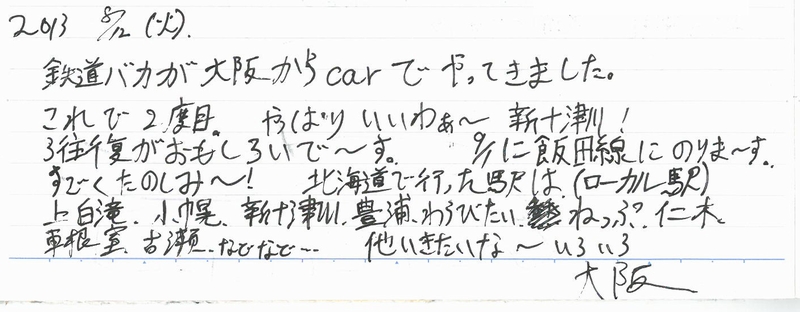 2013 8/12 (火).
鉄道バカが大阪からcarでやってきました。
これで2度目。 やっぱりいいわぁ〜 新十津川!
3往復がおもしろいで〜す。 9/1に飯田線にのりま〜す。
すごくたのしみ〜! 北海道で行った駅は、(ローカル駅)
上白滝、小幌、新十津川、豊浦、わらびたい、ねっぷ、仁木、
東根室、古瀬、などなど… 他いきたいな〜いろいろ
大阪